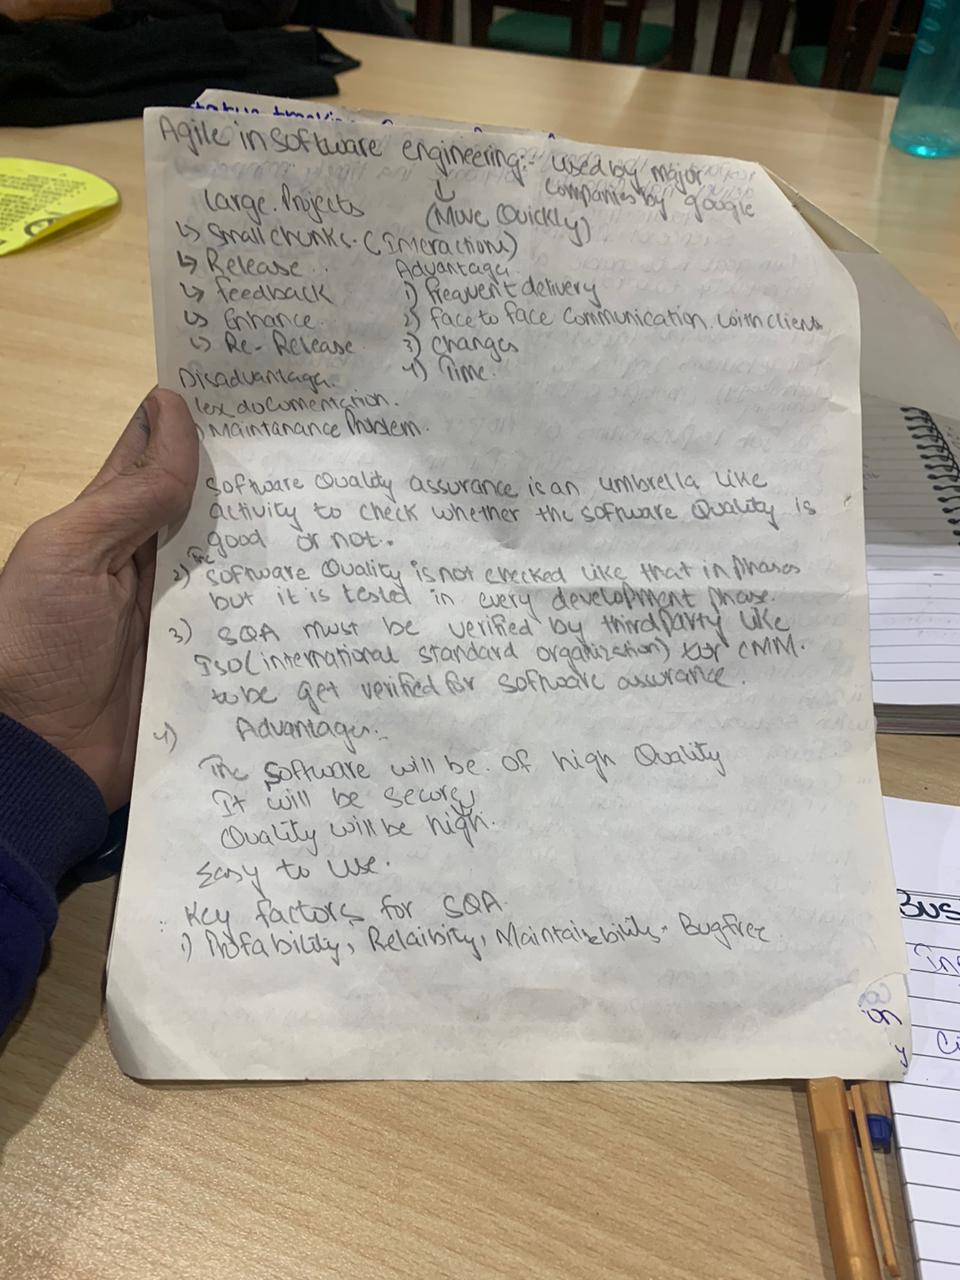 Agile in software engineering:- used by major
companies by google
Large. Projects
(Move Quickly)
↳ Small chunks. (Interactions)
↳ Release..
↳ feedback
↳ Enhance.
↳ Re-Release.
Advantage.
1) frequent delivery
2) face to face communication. with clients
3) changes
4) Time.
Disadvantage.
documentation.
) Maintanance Problem.
Software Quality assurance is an umbrella like
activity to check whether the software Quality is
good or not.
2) The Software Quality is not checked like that in Phases
but it is tested in every development phase.
3) SQA must be verified by third party like
ISO (international standard organization) CMM.
to be get verified for software assurance.
4) Advantages:-
The software will be. of high Quality
It will be secure
Quality will be high.
Easy to use.
: Key factors for SQA.
1) Relaibity, Bugfree
Bus